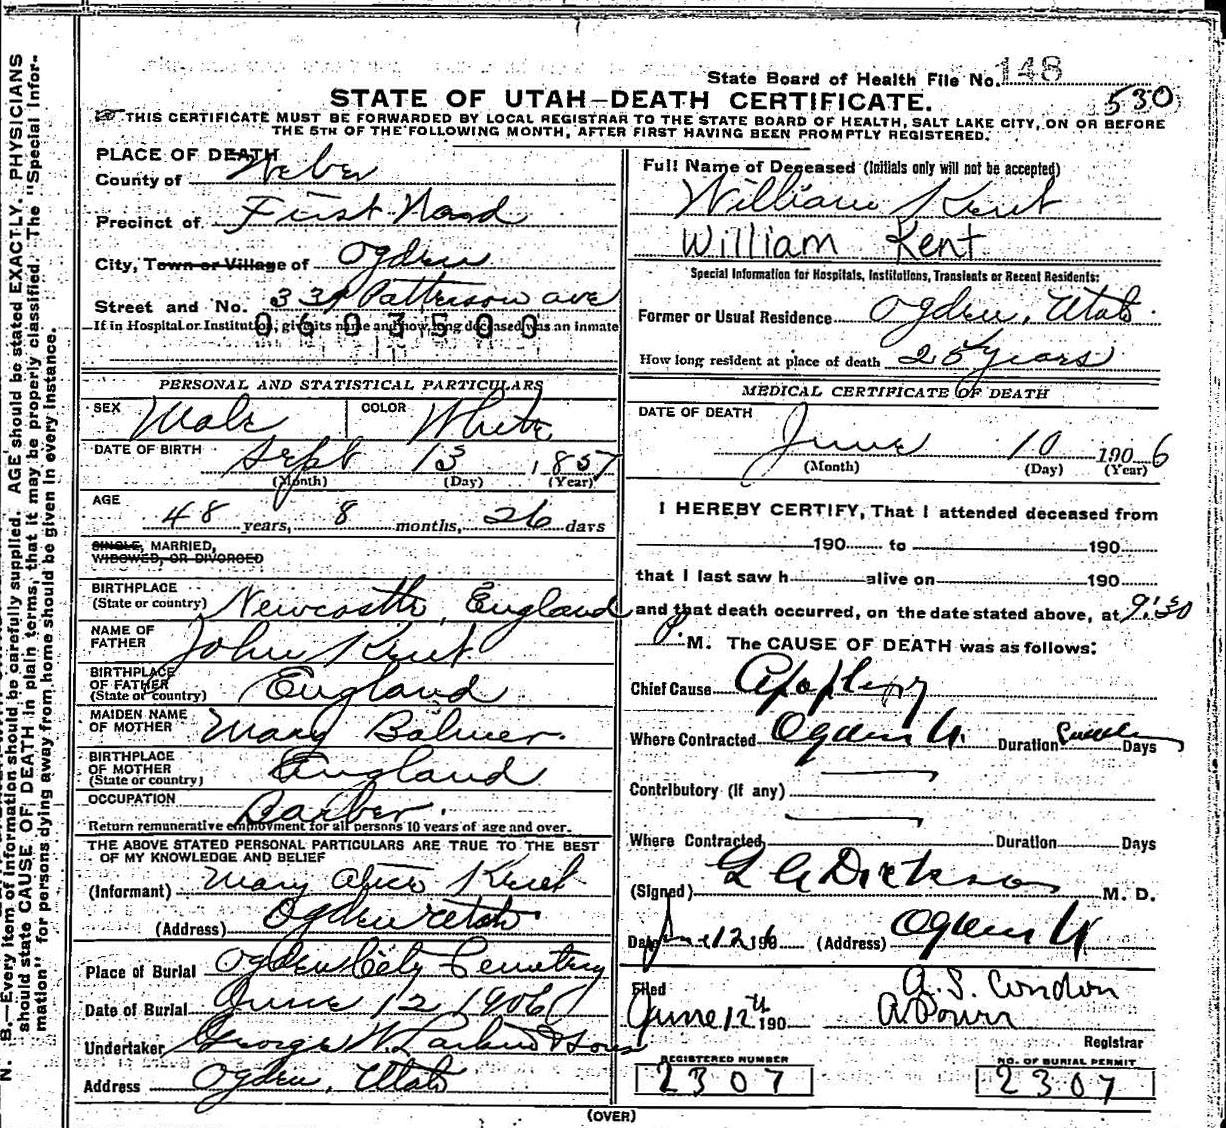 State Board of Health File No. 148
530
STATE OF UTAH—DEATH CERTIFICATE.
THIS CERTIFICATE MUST BE FORWARDED BY LOCAL REGISTRAR TO THE STATE BOARD OF HEALTH, SALT LAKE CITY, ON OR BEFORE
THE 5TH OF THE FOLLOWING MONTH, AFTER FIRST HAVING BEEN PROMPTLY REGISTERED.
PLACE OF DEATH
County of Weber
Precinct of First Ward
City, Town or Village of Ogden
Street and No. 339 Patterson ave
If in Hospital or Institution, give its name and how long deceased was an inmate
0603500
PERSONAL AND STATISTICAL PARTICULARS
SEX Male COLOR White
DATE OF BIRTH Sept 15 1857
(Month) (Day) (Year)
AGE
48 years, 8 months, 26 days
SINGLE, MARRIED,
WIDOWED, OR DIVORCED
BIRTHPLACE
(State or country) Newcastle, England
NAME OF
FATHER John Kent
BIRTHPLACE
OF FATHER
(State or country) England
MAIDEN NAME
OF MOTHER Mary Balmer.
BIRTHPLACE
OF MOTHER
(State or country) England
OCCUPATION Barber.
Return remunerative employment for all persons 10 years of age and over.
THE ABOVE STATED PERSONAL PARTICULARS ARE TRUE TO THE BEST
OF MY KNOWLEDGE AND BELIEF
(Informant) Mary Alice Kent
(Address) Ogden Utah
Place of Burial Ogden City Cemetery
Date of Burial June 12 1906
Undertaker George W. Larkin & Sons
Address Ogden, Utah
Full Name of Deceased (Initials only will not be accepted)
William Kent
William Kent
Special Information for Hospitals, Institutions, Transients or Recent Residents:
Former or Usual Residence Ogden, Utah.
How long resident at place of death 25 years
MEDICAL CERTIFICATE OF DEATH
DATE OF DEATH
June 10 1906
(Month) (Day) (Year)
I HEREBY CERTIFY, That I attended deceased from
190 to 190
that I last saw h alive on 190
and that death occurred, on the date stated above, at 9:30
P. M. The CAUSE OF DEATH was as follows:
Chief Cause Apoplexy
Where Contracted Ogden U. Duration Sudden Days
Contributory (If any)
Where Contracted Duration Days
(Signed) Dickson M. D.
Date 12 1906 (Address) Ogden U
Filed A. S. Condon
June 12th 190
Registrar
REGISTERED NUMBER NO. OF BURIAL PERMIT
2307 2307
(OVER)
N. B.—Every item of Information should be carefully supplied. AGE should be stated EXACTLY. PHYSICIANS
should state CAUSE OF DEATH in plain terms, that it may be properly classified. The "Special Infor-
mation" for persons dying away from home should be given in every instance.